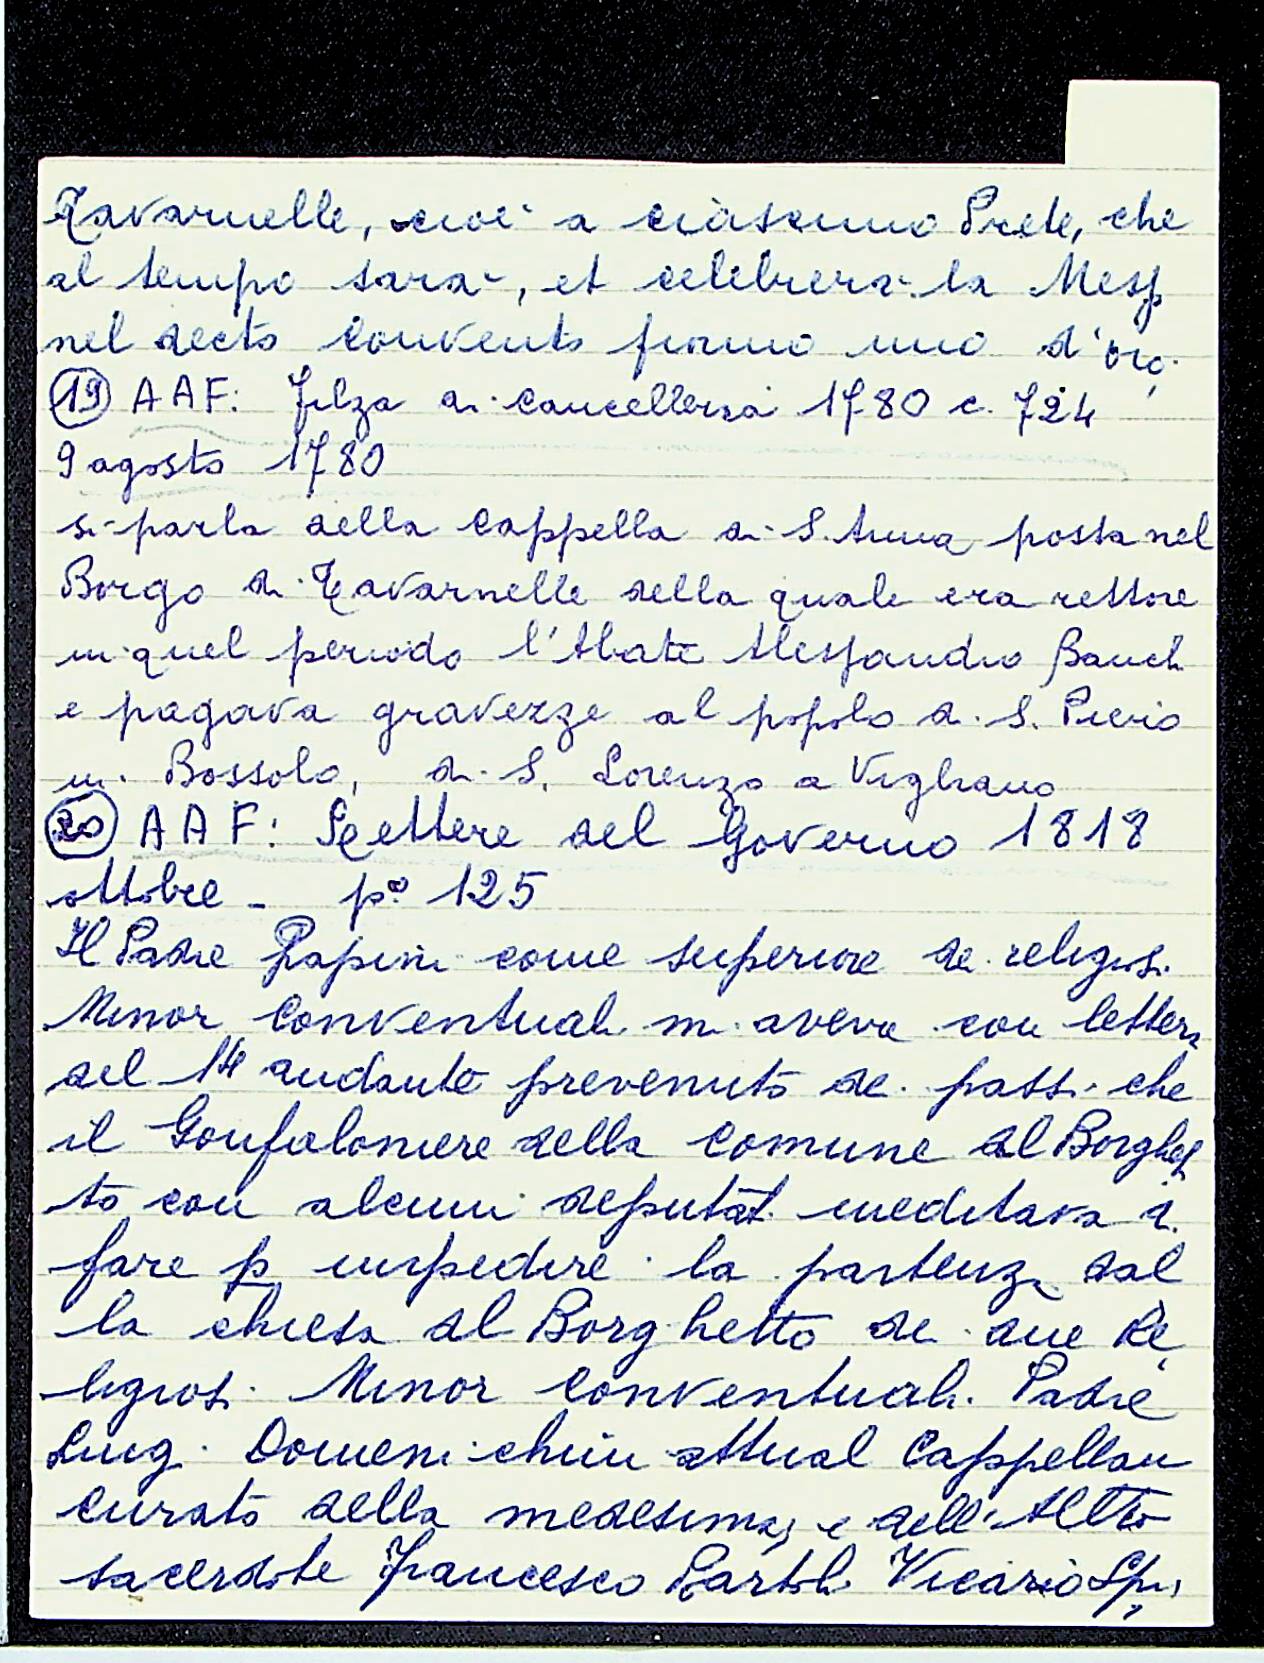 Tavarnelle, cioè a ciascuno Prete, che
al tempo sarà, et celebrerà la Mess
nel decto Convento fiorino uno d'oro.
19 AAF: Filza di cancelleria 1780 c. 724
9 agosto 1780
si parla della Cappella di S. Anna posta nel
Borgo di Tavarnelle della quale era rettore
in quel periodo l'Abate Alessandro Banch
e pagava gravezze al popolo di S. Piero
in Bossolo, di S. Lorenzo a Vigliano
20 AAF: Lettere del Governo 1818
ottobre - pa 125
Il Padre Papini come superiore dei religiosi
Minor Conventuali mi aveva con lettera
del 14 andante prevenuto dei passi che
il Gonfaloniere della Comune al Borghet
to con alcuni deputati meditava di
fare p impedire la partenza dal
la chiesa al Borghetto dei due Re
ligiosi Minor Conventuali Padre
Luigi Domenichini attual Cappellan
curato della medesima, e dell'Altro
sacerdote Francesco Bartoli Vicario